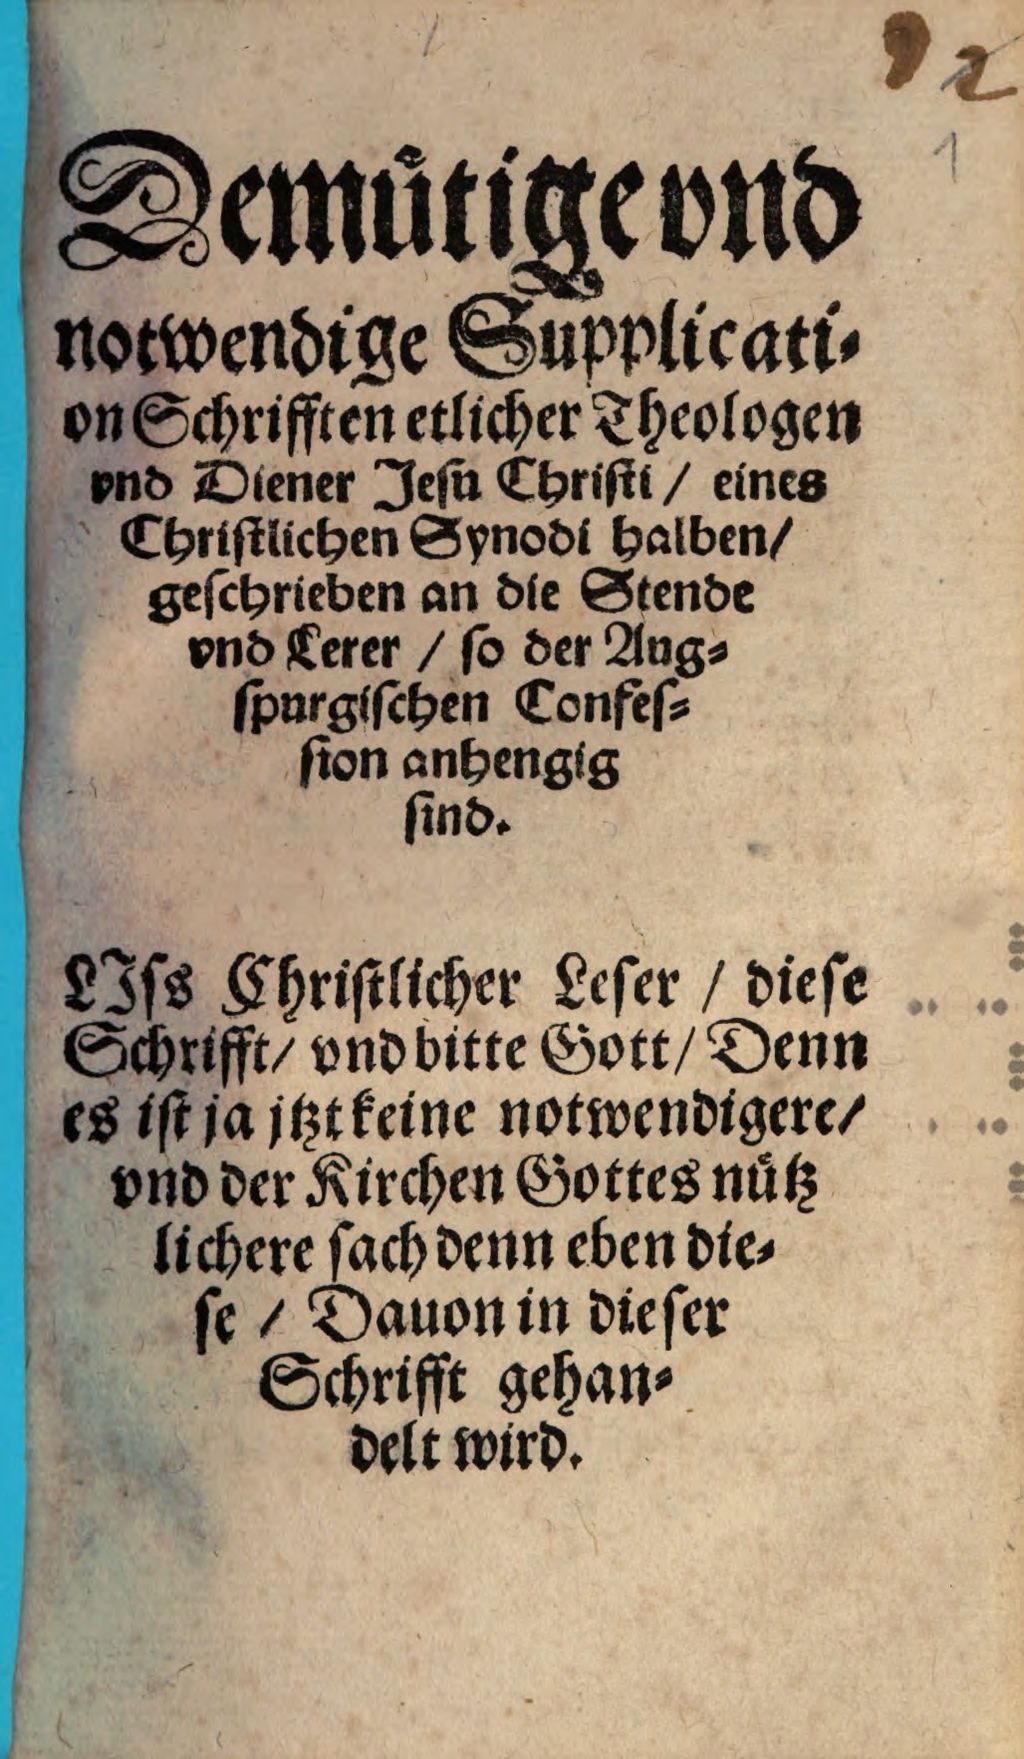 92
1
Demuͤtige vnd
notwendige Supplicati⸗
on Schrifften etlicher Theologen
vnd Diener Jesu Christi / eines
Christlichen Synodi halben/
geschrieben an die Stende
vnd Lerer / so der Aug⸗
spurgischen Confes⸗
sion anhengig
sind.
LJss Christlicher Leser / diese
Schrifft/ vnd bitte Gott/ Denn
es ist ja jtzt keine notwendigere/
vnd der Kirchen Gottes nuͤtz
lichere sach denn eben die⸗
se / Dauon in dieser
Schrifft gehan⸗
delt wird.